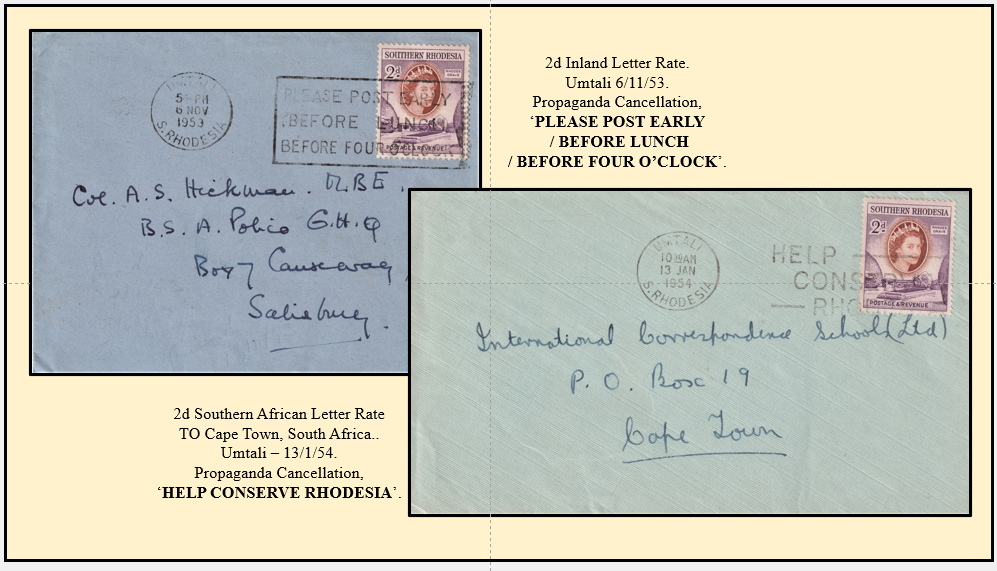 2d Inland Letter Rate.
Umtali 6/11/53.
Propaganda Cancellation,
‘PLEASE POST EARLY
/ BEFORE LUNCH
/ BEFORE FOUR O’CLOCK’.
SOUTHERN RHODESIA
2d
POSTAGE & REVENUE
UMTALI
5 PM
6 NOV
1953
S. RHODESIA
PLEASE POST EARLY
BEFORE LUNCH
BEFORE FOUR O'CLOCK
Col. A.S. Hickman. MBE.
B.S.A. Police G.H.Q
Box 7 Causeway,
Salisbury.
SOUTHERN RHODESIA
2d
POSTAGE & REVENUE
UMTALI
10 AM
13 JAN
1954
S. RHODESIA
HELP
CONSERVE
RHO
International Correspondence Schools (Ltd)
P. O. Box 19
Cape Town
2d Southern African Letter Rate
TO Cape Town, South Africa..
Umtali – 13/1/54.
Propaganda Cancellation,
‘HELP CONSERVE RHODESIA’.